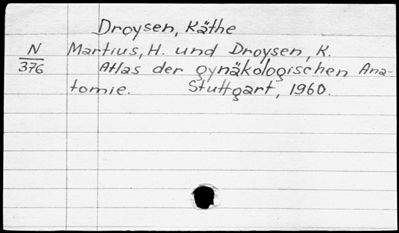 Droysen, Käthe
N Martius, H. und Droysen, K.
376 Atlas der gynäkologischen Ana-
tomie. Stuttgart, 1960.